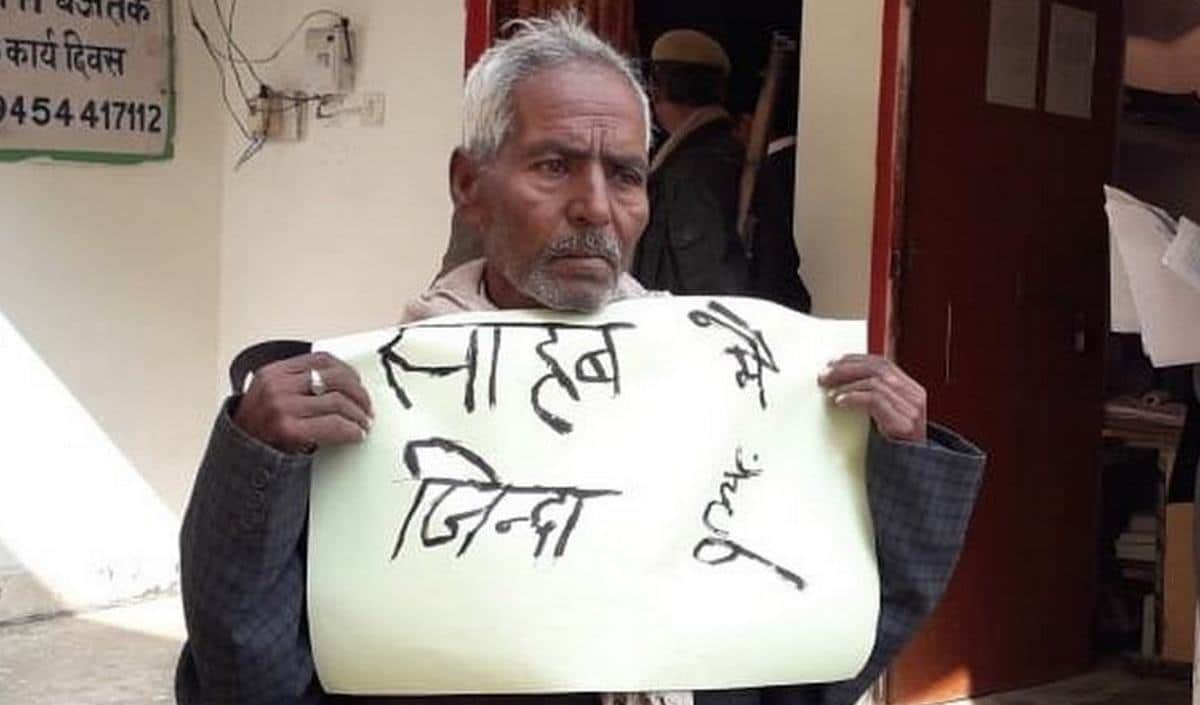 बजे तक
कार्य दिवस
9454417112
साहब मैं
जिन्दा हूँ